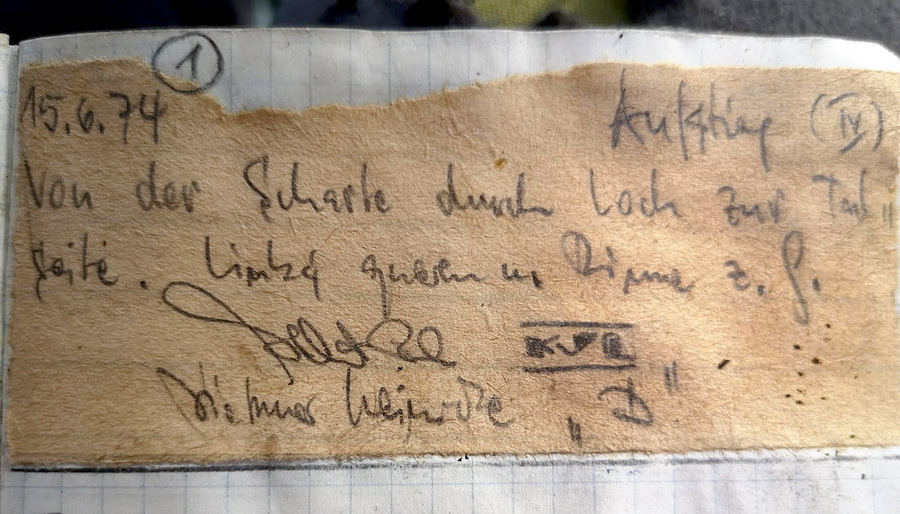 1
15.6.74 Aufstieg (IV)
Von der Scharte durch Loch zur Tal„
seite. Links queren u. Rinne z. G.
KVB
Dietmar Heinicke „D"